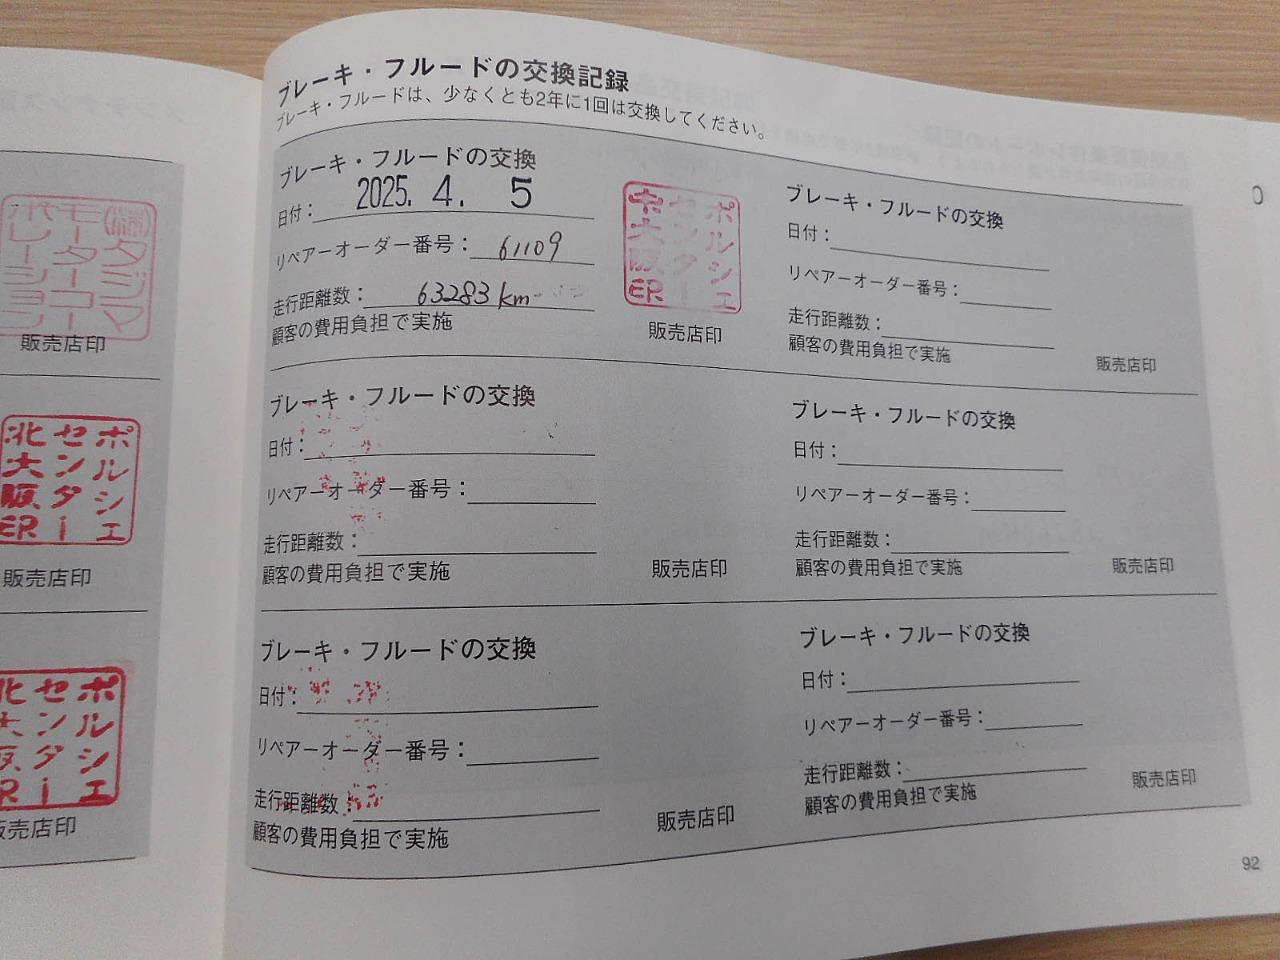 ㈱タジマ
モーターコー
ポレーショ
販売店印
ポルシェ
センター
北大阪ER
販売店印
ポルシェ
センター
販売店印
ブレーキ・フルードの交換記録
ブレーキ・フルードは、少なくとも2年に1回は交換してください。
ブレーキ・フルードの交換
日付: 2025. 4. 5
リペアーオーダー番号: 61109
走行距離数: 63283 km
顧客の費用負担で実施
ポルシェ
センター
大阪ER
販売店印
ブレーキ・フルードの交換
日付:
リペアーオーダー番号:
走行距離数:
顧客の費用負担で実施
販売店印
ブレーキ・フルードの交換
日付:
リペアーオーダー番号:
走行距離数:
顧客の費用負担で実施
販売店印
ブレーキ・フルードの交換
日付:
リペアーオーダー番号:
走行距離数:
顧客の費用負担で実施
販売店印
ブレーキ・フルードの交換
日付:
リペアーオーダー番号:
走行距離数:
顧客の費用負担で実施
販売店印
ブレーキ・フルードの交換
日付:
リペアーオーダー番号:
走行距離数:
顧客の費用負担で実施
販売店印
92